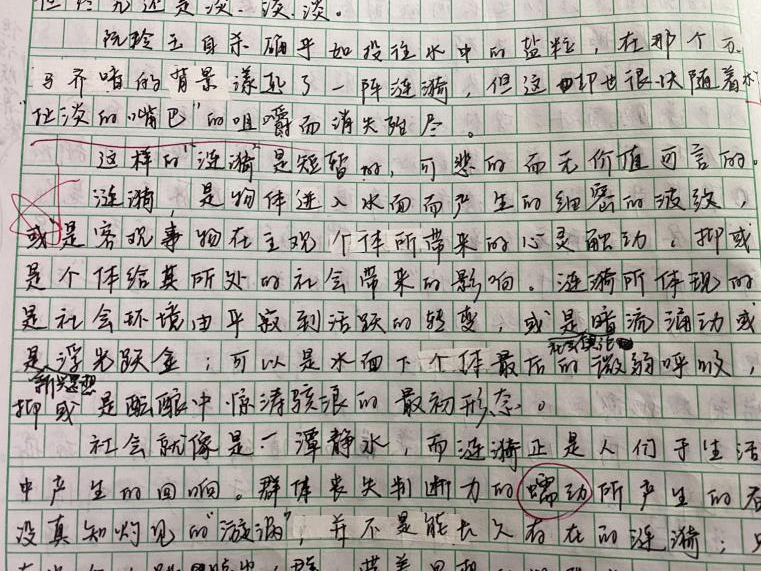 还是淡、淡、淡。
阮玲玉自杀确乎如投注水中的盐粒，在那个
的背景漾起了一阵涟漪，但这却也很快随着
"扯淡的嘴巴"的咀嚼而消失殆尽。
这样的"涟漪"是短暂的，可悲的而无价值可言的。
涟漪，是物体进入水面而产生的细密的波纹，
或是客观事物在主观个体所带来的心灵触动，抑或
是个体给其所处的社会带来的影响。涟漪所体现的
是社会环境由平寂到活跃的转变，或是暗流涌动或
是浮光跃金；可以是水面下个体最后的微弱呼吸，
新思想
抑或是酝酿中惊涛骇浪的最初形态。
社会就像是一潭静水，而涟漪正是人们于生活
中产生的回响。群体丧失判断力的蠕动所产生的
没真知灼见的"漩涡"，并不是能长久存在的涟漪；